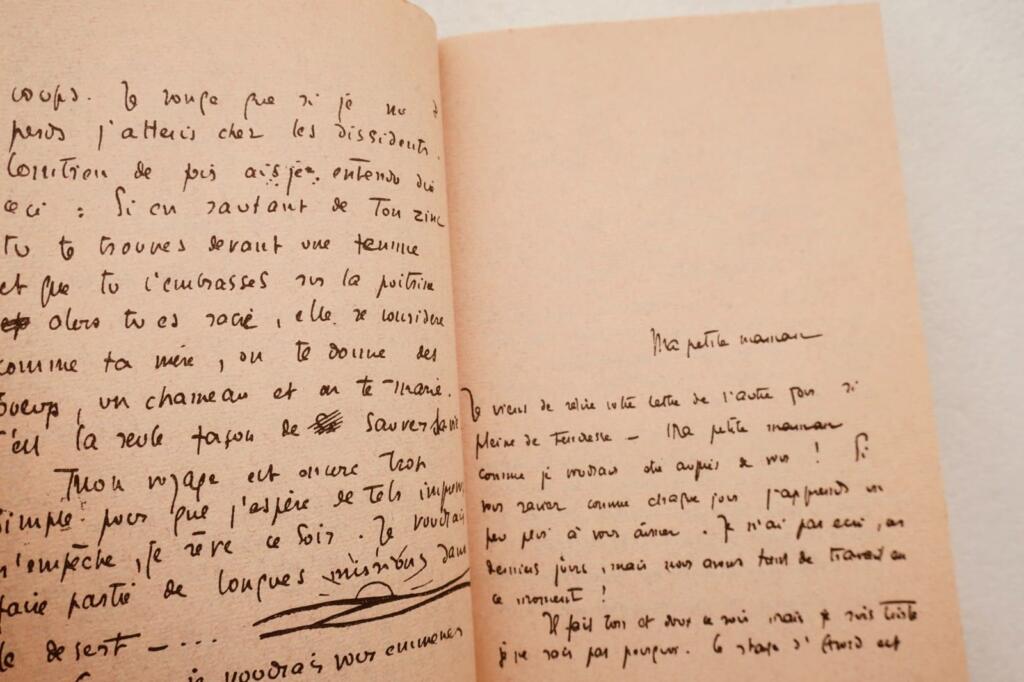 coups. Je songe que si je me
perds j'atterris chez les dissidents.
de puis ai-je entendu dire
ceci : Si en sautant de ton zinc
tu te trouves devant une femme
et que tu l'embrasses sur la poitrine
alors tu es sacré, elle se considère
comme ta mère, on te donne des
boeufs, un chameau et on te marie.
C'est la seule façon de sauver ta vie
Mon voyage est encore trop
simple pour que j'espère de tels imprévus
n'empêche, je rêve ce soir. Je voudrais
faire partie de longues missions dans
le desert - ....
je voudrais vous emmener
Ma petite maman
Je viens de relire votre lettre de l'autre jour si
pleine de tendresse - Ma petite maman
comme je voudrais être auprès de vous ! Si
vous saviez comme chaque jour j'apprends un
peu plus à vous aimer. Je n'ai pas écrit, ces
derniers jours, mais nous avons tant de travail en
ce moment !
Il fait bon et doux ce soir mais je suis triste
je ne sais pas pourquoi. Ce stage d'Avord est